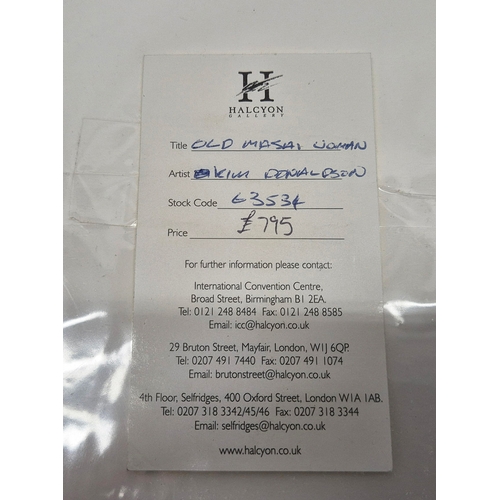 H
HALCYON
GALLERY
Title OLD MASAI WOMAN
Artist KIM DONALDSON
Stock Code 63534
Price £795
For further information please contact:
International Convention Centre,
Broad Street, Birmingham B1 2EA.
Tel: 0121 248 8484 Fax: 0121 248 8585
Email: icc@halcyon.co.uk
29 Bruton Street, Mayfair, London, W1J 6QP.
Tel: 0207 491 7440 Fax: 0207 491 1074
Email: brutonstreet@halcyon.co.uk
4th Floor, Selfridges, 400 Oxford Street, London W1A 1AB.
Tel: 0207 318 3342/45/46 Fax: 0207 318 3344
Email: selfridges@halcyon.co.uk
www.halcyon.co.uk